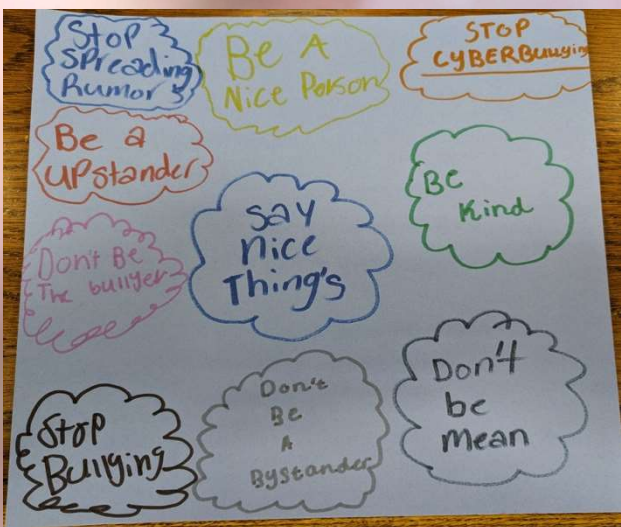 Stop
Spreading
Rumors
Be A
Nice Person
STOP
CYBERBullying
Be a
UPstander
Be
Kind
Say
nice
Thing's
Don't Be
The bullyer
Stop
Bullying
Don't
Be
A
Bystander
Don't
be
mean